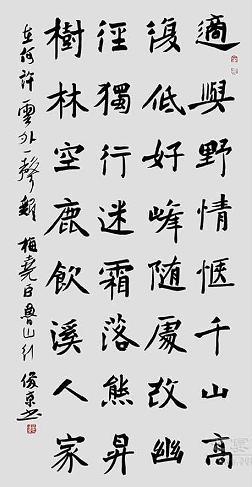 適與野情愜千山高
復低好峰随處改幽
徑獨行迷霜落熊昇
樹林空鹿飲溪人家
在何許雲外一聲雞 梅堯臣魯山行 俊京书